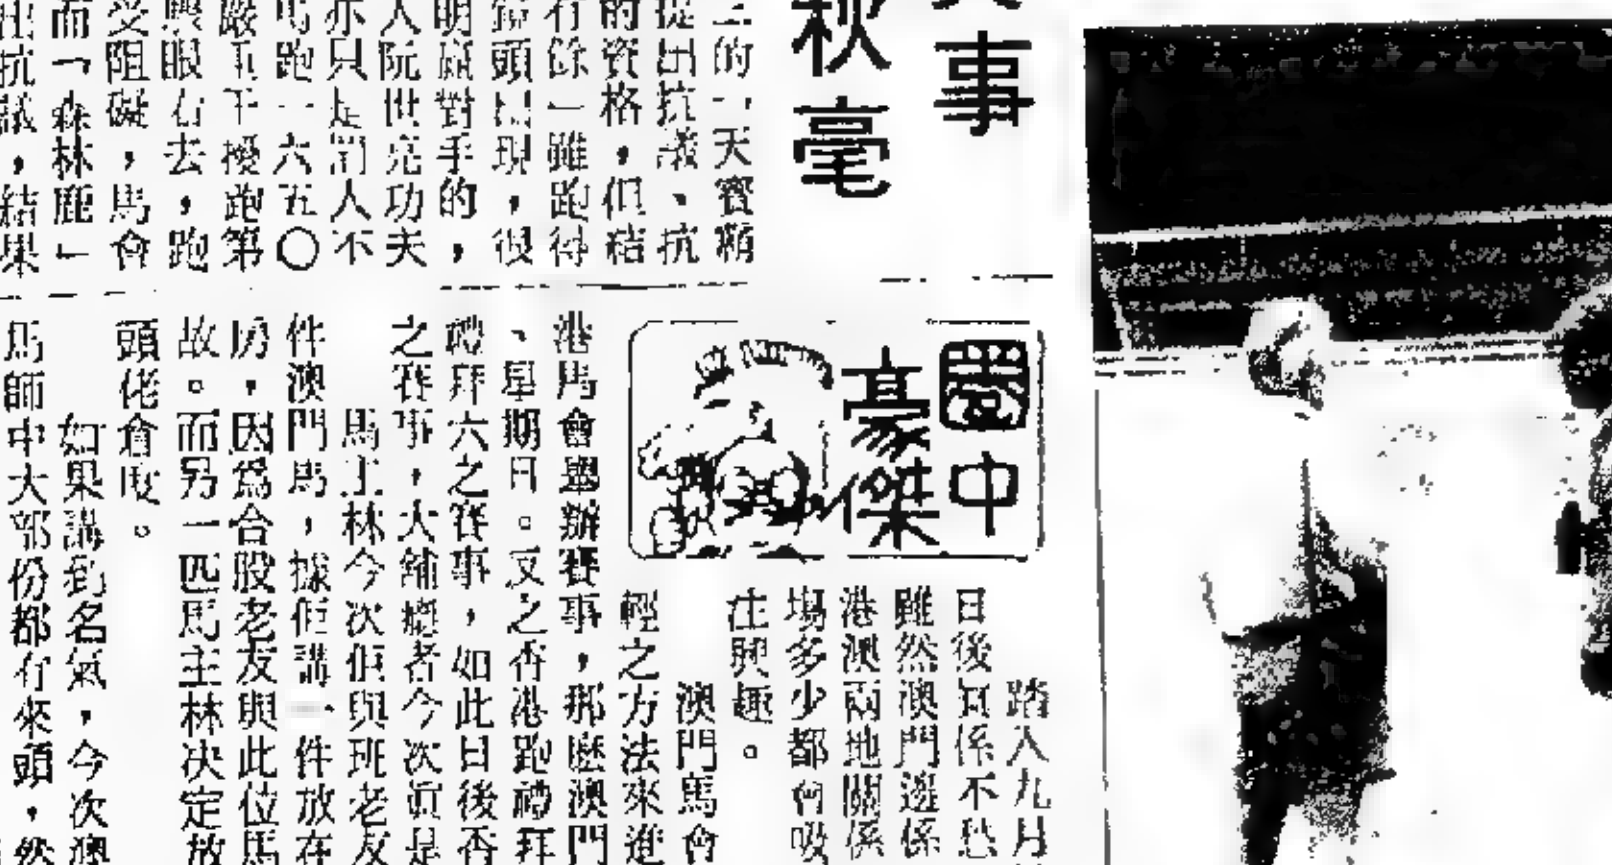 事
秋毫
的一天賽
提出抗議、抗
的資格，但結
有餘」雖跑得
鏡頭出現，很
明贏對手的，
人阮世亮功夫
亦只是罰人不
馬跑一六五〇
嚴重干擾跑第
眼右去，跑
受阻礙，馬會
而「森林鹿」
出抗議，結果
圈中
豪傑
踏入九月
日後真係不愁
雖然澳門邊係
港澳兩地關係
場多少都會吸
注興趣。
澳門馬會
輕之方法來進
港馬會舉辦賽事，那麼澳門
、星期日。反之香港跑禮拜
禮拜六之賽事，如此日後香
之賽事，大舖癮者今次真是
馬主林今次佢與班老友
件澳門馬，據佢講一件放在
房，因為合股老友與此位馬
故。而另一匹馬主林決定放
頭佬倉度。
如果講到名氣，今次澳
馬師中大部份都有來頭，然